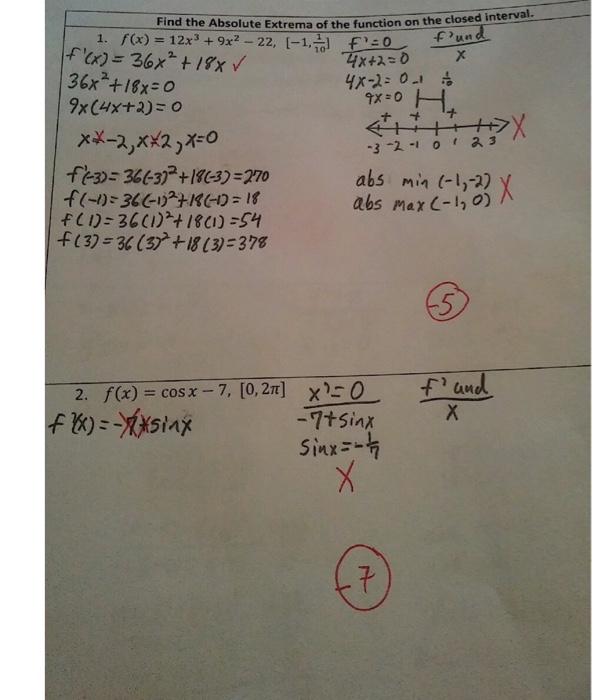 Find the Absolute Extrema of the function on the closed interval.
1. f(x) = 12x³ + 9x² − 22, [−1, 1/10]
f'(x) = 36x² + 18x ✓
36x² + 18x = 0
9x(4x+2) = 0
x≠-2, x≠2, x=0
f'(-3) = 36(-3)² + 18(-3) = 270
f(-1) = 36(-1)² + 18(-1) = 18
f(1) = 36(1)² + 18(1) = 54
f(3) = 36(3)² + 18(3) = 378
f'=0
4x+2=0
4x-2=0
9x=0
f' und
x
-1 1/10
+ + +
-3 -2 -1 0 1 2 3 X
abs min (-1,-2) X
abs max (-1, 0)
-5
2. f(x) = cos x − 7, [0, 2π]
f'(x) = -7+sinx
x'=0
-7+sinx
sinx = -1/7
X
f' und
x
-7